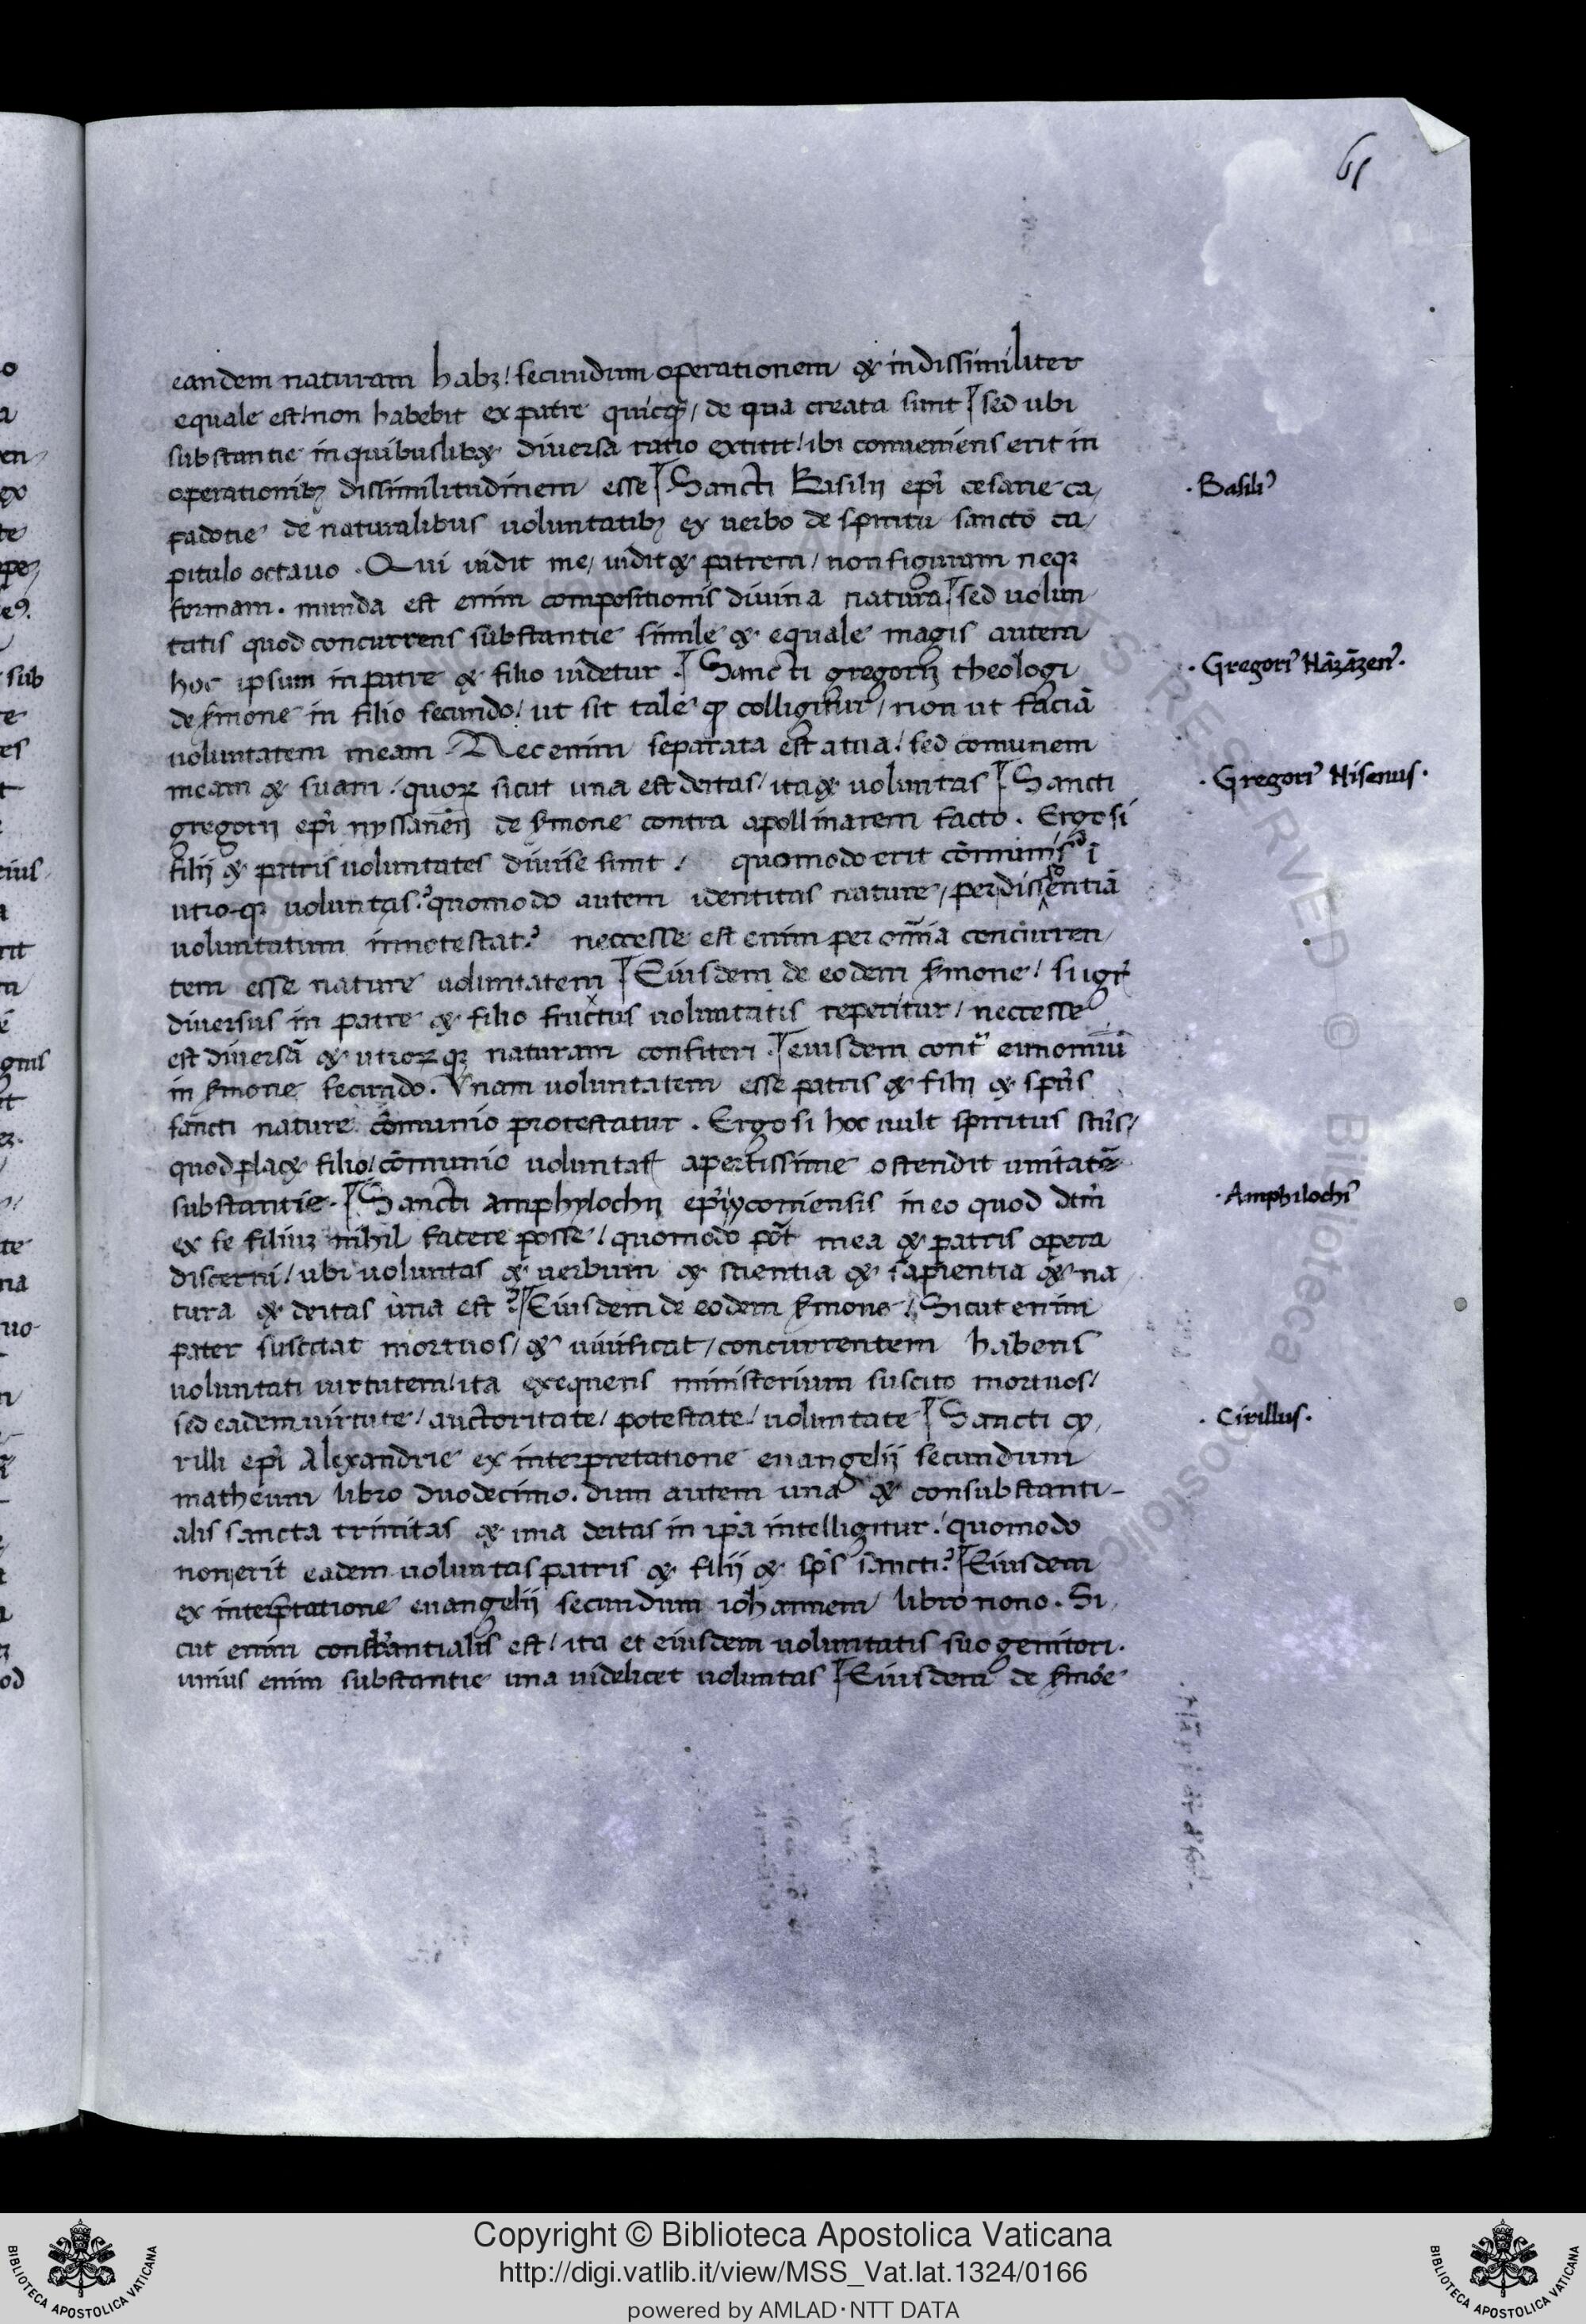 61
eandem naturam habꝫ! secundum operationem & indissimiliter
equale est! non habebit ex patre quicqꝫ/ de qua creata sunt sed ubi
substantie in quibuslib& diversa ratio extitit! ibi conueniens erit in
operationibꝫ dissimilitudinem esse Sancti Basilij ep̄i cesarie ca/
padotie de naturalibus uoluntatibꝫ ex uerbo de spiritu sancto ca/
pitulo octauo. Qui uidit me/ uidit & patrem/ non figuram neqꝫ
formam. munda est enim compositionis divina natura. sed uolun
tatis quod concurrens substantie simile & equale magis autem
hoc ipsum in patre & filio uidetur. Sancti gregorij theologi
de s̄mone in filio secundo! ut sit tale qꝫ colligitur/ non ut faciā
uoluntatem meam Nec enim separata est a tua! sed comunem
meam & suam/ quoꝝ sicut una est deitas/ ita & uoluntas Sancti
gregorij ep̄i nyssaneñ de s̄mone contra apollinarem facto. Ergo si
filij & patris uoluntates divise sunt! quomodo erit cōmunis ī
utro-qꝫ voluntas? quomodo autem identitas nature/ per dissentiā
uoluntatum innotestat? neccesse est enim per om̄ia concurren/
tem esse nature uoluntatem Eiusdem de eodem s̄mone! si igr̄
diversus in patre & filio fructus uoluntatis reperitur/ neccesse
est diversā & utroꝝqꝫ naturam confiteri. eiusdem cont̄ eunomiū
in s̄mone secundo. Vnam uoluntatem esse patris & filij & sp̄us
sancti nature cōmunio protestatur. Ergo si hoc uult spiritus sc̄us/
quod plac& filio! cōmunio uoluntat apertissime ostendit unitatē
substantie. Sancti Amphylochij ep̄i ycomiensis in eo quod dcm̄
ex se filiuꝫ nihil facere posse! quomodo pōt mea & patris opera
discerni/ ubi uoluntas & uerbum & scientia & sapientia & na
tura & deitas una est? Eiusdem de eodem s̄mone! Sicut enim
pater suscitat mortuos/ & uiuificat/ concurrentem habens
uoluntati uirtutem! ita exequens ministerium suscito mortuos/
sed eadem uirtute/ auctoritate/ potestate/ uoluntate Sancti cy/
rilli ep̄i Alexandrie ex interpretatione euangelij secundum
matheum libro duodecimo. dum autem una & consubstanti-
alis sancta trinitas & una deitas in ip̄a intelligitur! quomodo
non erit eadem uoluntas patris & filij & sp̄s sancti? Eiusdem
ex interp̄tatione euangelij secundum iohannem libro nono. Si/
cut enim consb̄stantialis est/ ita et eiusdem uoluntatis suo genitori.
unius enim substantie una uidelicet uoluntas Eiusdem de s̄moe
· Basiliꝰ
· Gregoriꝰ Nāzāzenꝰ·
· Gregoriꝰ Nisenus·
· Amphilochiꝰ
· Cirillus·
Copyright © Biblioteca Apostolica Vaticana
http://digi.vatlib.it/view/MSS_Vat.lat.1324/0166
powered by AMLAD·NTT DATA
BIBLIOTECA APOSTOLICA VATICANA
BIBLIOTECA APOSTOLICA VATICANA